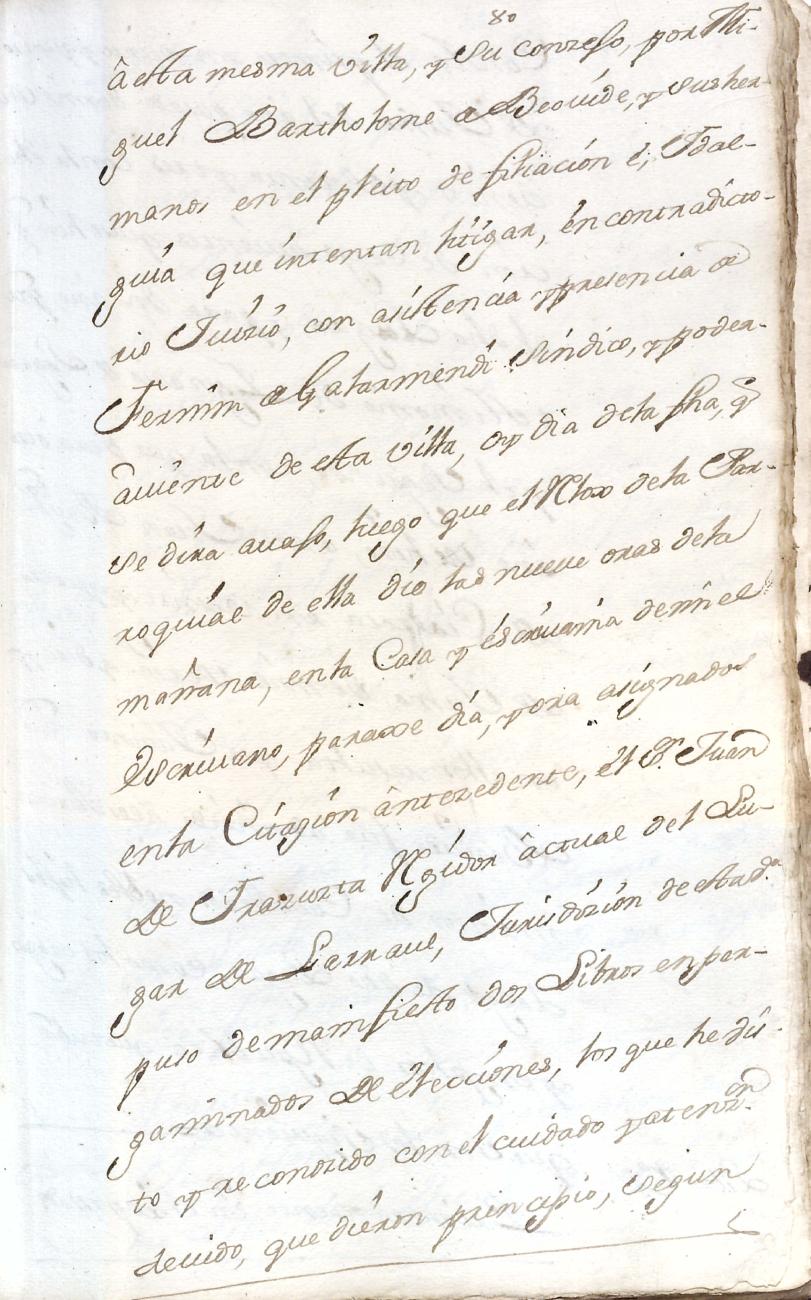 80
â esta mesma villa, y su conzejo, por Mi-
guel Bartholome de Beovide, y sus her-
manos en el pleito de filiación é, Idal-
guia que intentan litigar, en contradicto-
rio Juizio, con asistencia y presencia de
Fermin de Galarmendi Sindico, y poder-
aviente de esta villa, oy dia de la fha, q̃
se dira avajo, luego que el Rlox de la Par-
roquial de ella dio las nueve oras de la
mañana, en la Casa y éscrivania de mi el
Escrivano, paraxe dia, y ora asignados
en la Citazión ântezedente, el S.r Juan
de Irazuzta Rexidor âctual del Lu-
gar de Larraul, Jurisdizión de esta d.ha
puso de manifiesto dos Libros en per-
gaminados de élecciónes, los que he vis-
to y reconozido con el cuidado y atenz.on
devido, que diéron principio, segun